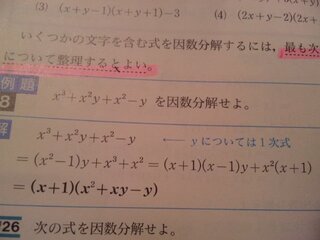 (3) (x+y−1)(x+y+1)−3 (4) (2x+y−2)(2x+
いくつかの文字を含む式を因数分解するには，最も次
について整理するとよい。
例題
8 x³+x²y+x²−y を因数分解せよ。
解 x³+x²y+x²−y ←― yについては1次式
=(x²−1)y+x³+x²=(x+1)(x−1)y+x²(x+1)
=(x+1)(x²+xy−y)
26 次の式を因数分解せよ。